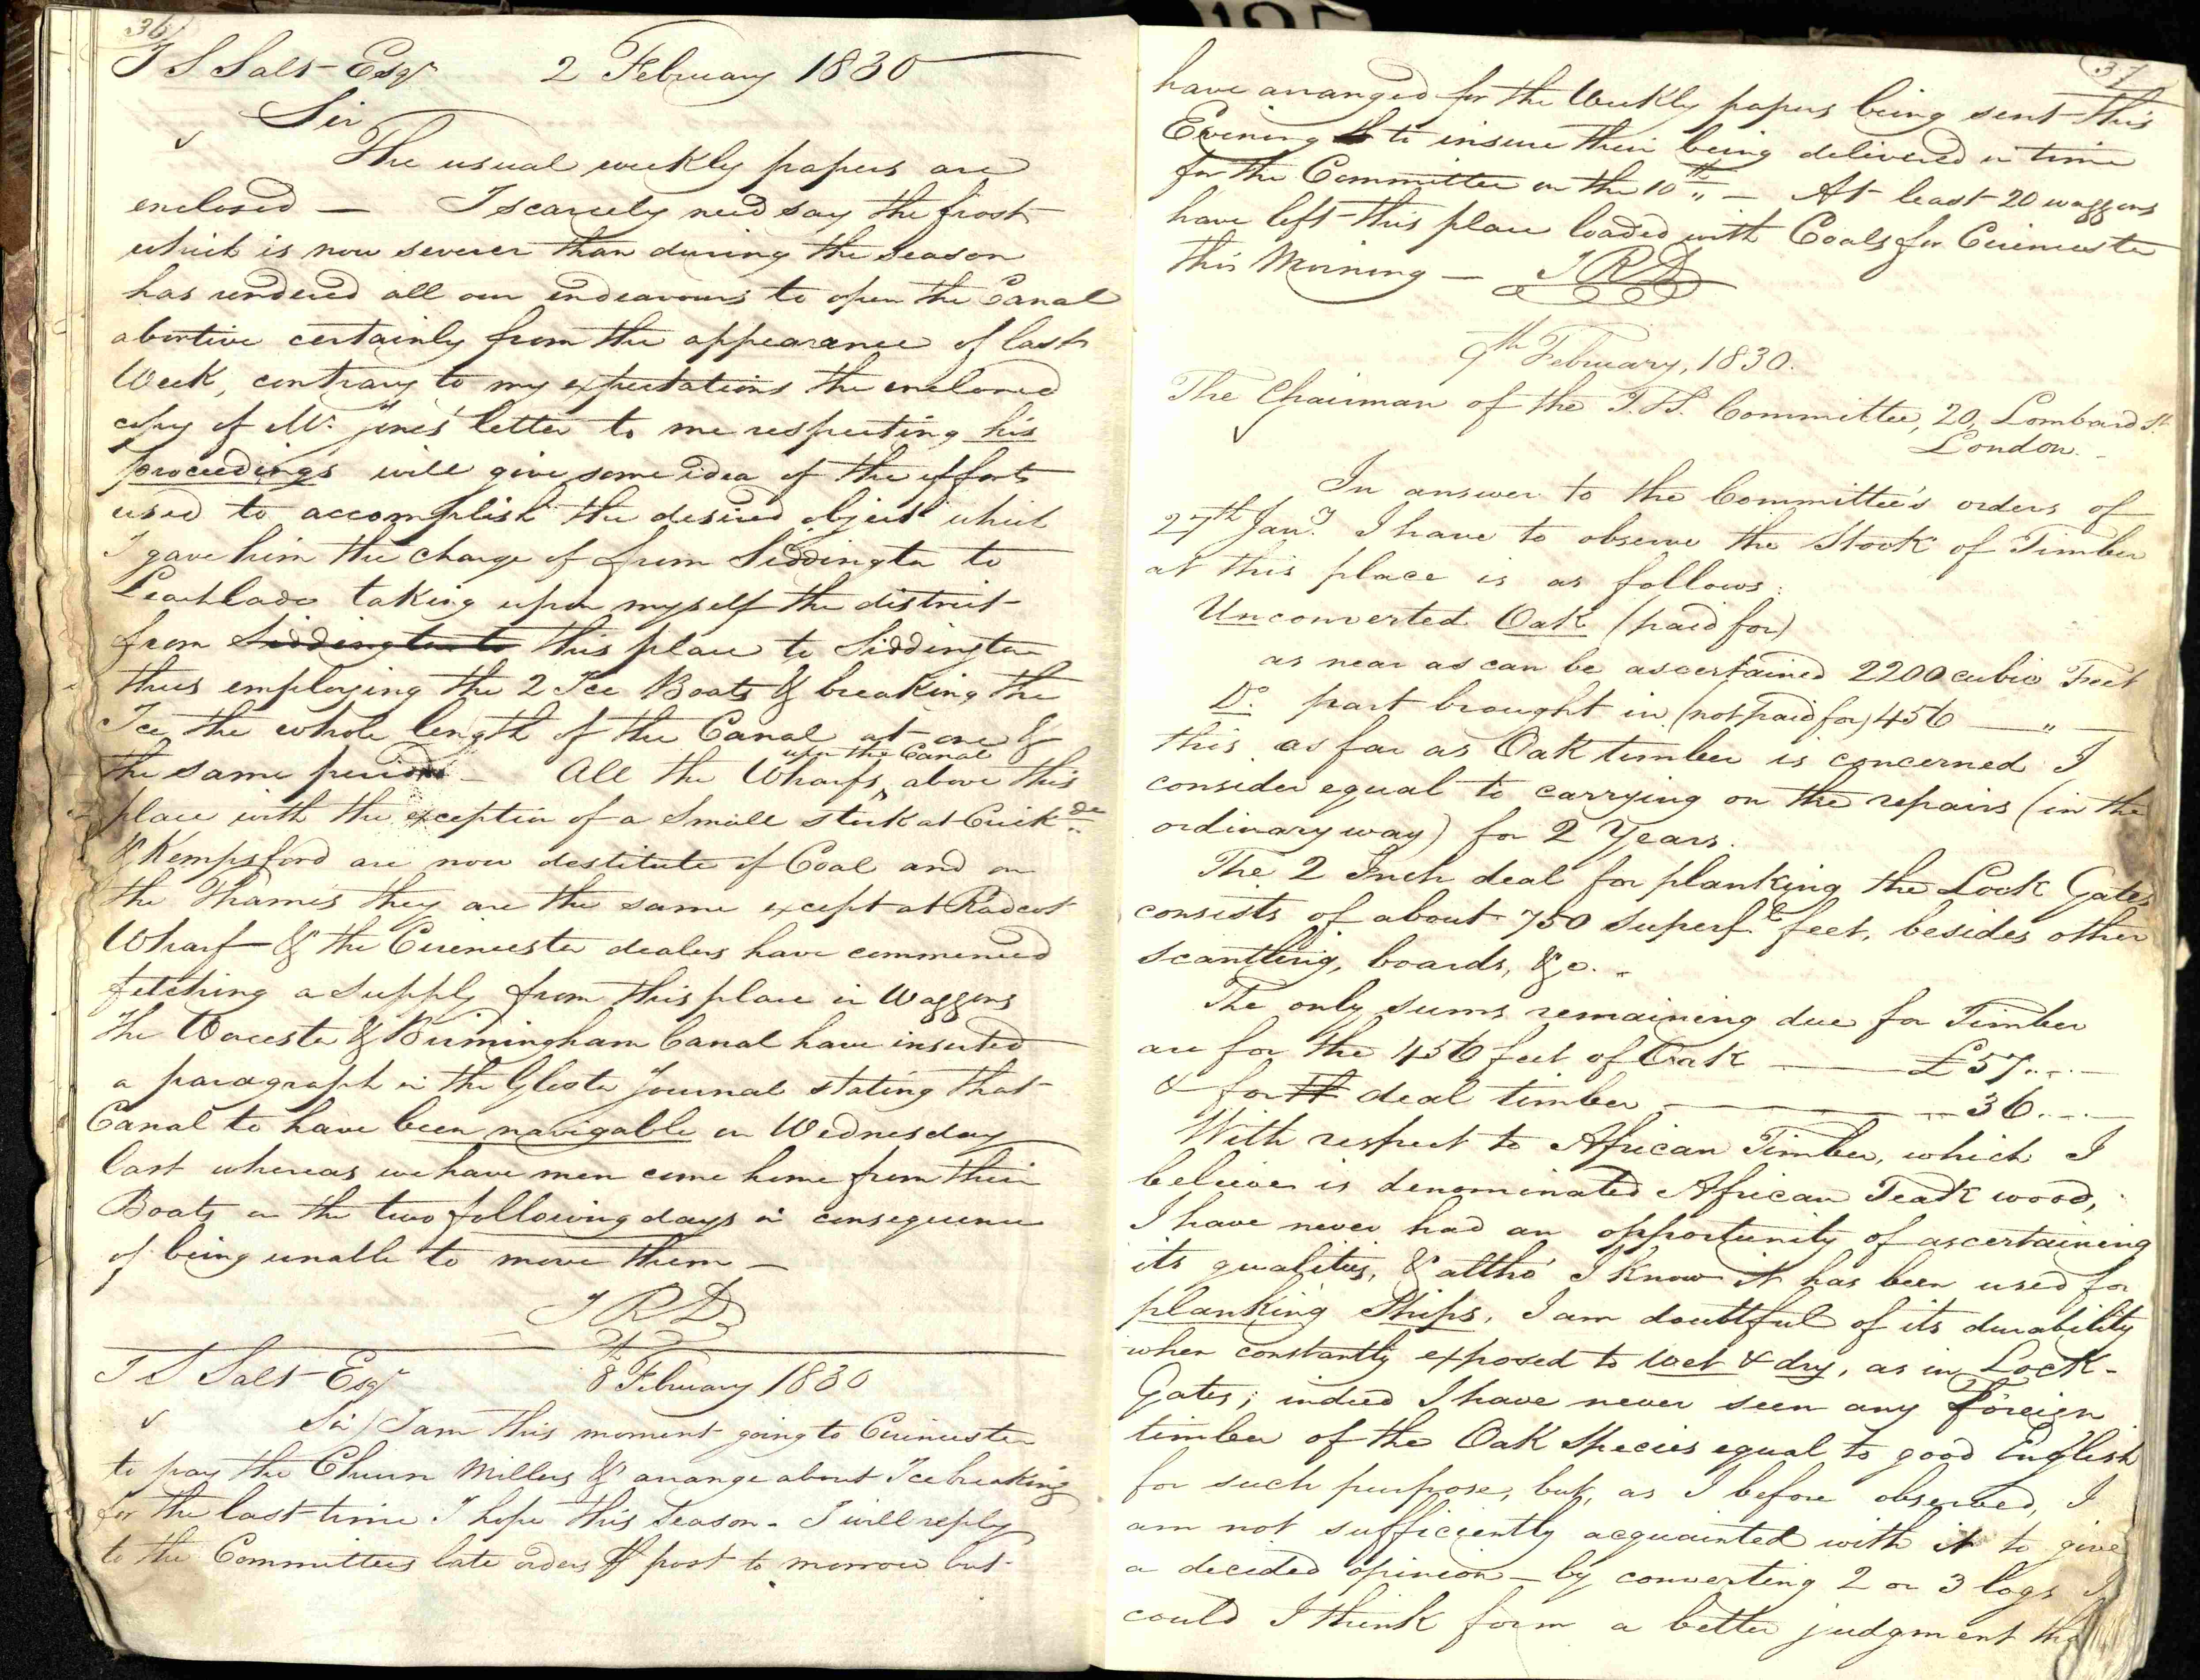 36
T S Salt Esqr 2 February 1830
Sir
The usual weekly papers are
enclosed — I scarcely need say the frost
which is now severer than during the season
has rendered all our endeavours to open the Canal
abortive certainly from the appearance of last
Week, contrary to my expectations the enclosed
copy of Mr. Jones' letter to me respecting his
proceedings will give some idea of the efforts
used to accomplish the desired object which
I gave him the charge of from Siddington to
Leachlade taking upon myself the district
from Siddington to this place to Siddington
thus employing the 2 Ice Boats & breaking the
Ice the whole length of the Canal at one &
the same period — All the Wharfs upon the Canal above this
place with the exception of a small stock at Crickde
& Kempsford are now destitute of Coal and on
the Thames they are the same except at Radcot
Wharf & the Cirencester dealers have commenced
fetching a supply from this place in Waggons
the Worcester & Birmingham Canal have inserted
a paragraph in the Glocster Journal stating that
Canal to have been navigable on Wednesday
last whereas we have men come home from their
Boats on the two following days in consequence
of being unable to move them —
J R D
T S Salt Esqr 8 February 1830
Sir/ I am this moment going to Cirencester
to pay the Churn Millers & arrange about Ice breaking
for the last time I hope this season - I will reply
to the Committees late orders pr post to morrow but
37
have arranged for the Weekly papers being sent this
Evening to insure their being delivered in time
for the Committee on the 10th — At least 20 waggons
have left this place loaded with Coals for Cirencester
this Morning — J R D
9th February, 1830.
The Chairman of the T. & S. Committee, 20, Lombard St.
London.
In answer to the Committee's orders of
27th Jany. I have to observe the Stock of Timber
at this place is as follows:
Unconverted Oak (paid for)
as near as can be ascertained 2200 cubic Feet
Do. part brought in (not paid for) 456 — " —
this as far as Oak timber is concerned I
consider equal to carrying on the repairs (in the
ordinary way) for 2 Years.
The 2 Inch deal for planking the Lock Gates
consists of about 750 superfl feet, besides other
scantling, boards, &c.
The only sums remaining due for Timber
are for the 456 feet of Oak — £57..-.-
& for deal timber — 36.-.-
With respect to African Timber, which I
believe is denominated African Teak wood,
I have never had an opportunity of ascertaining
its qualities, & altho' I know it has been used for
planking Ships, I am doubtful of its durability
when constantly exposed to wet & dry, as in Lock-
Gates; indeed I have never seen any Foreign
timber of the Oak Species equal to good English
for such purpose, but, as I before observed, I
am not sufficiently acquainted with it to give
a decided opinion — by converting 2 or 3 logs I
could I think form a better judgment tha